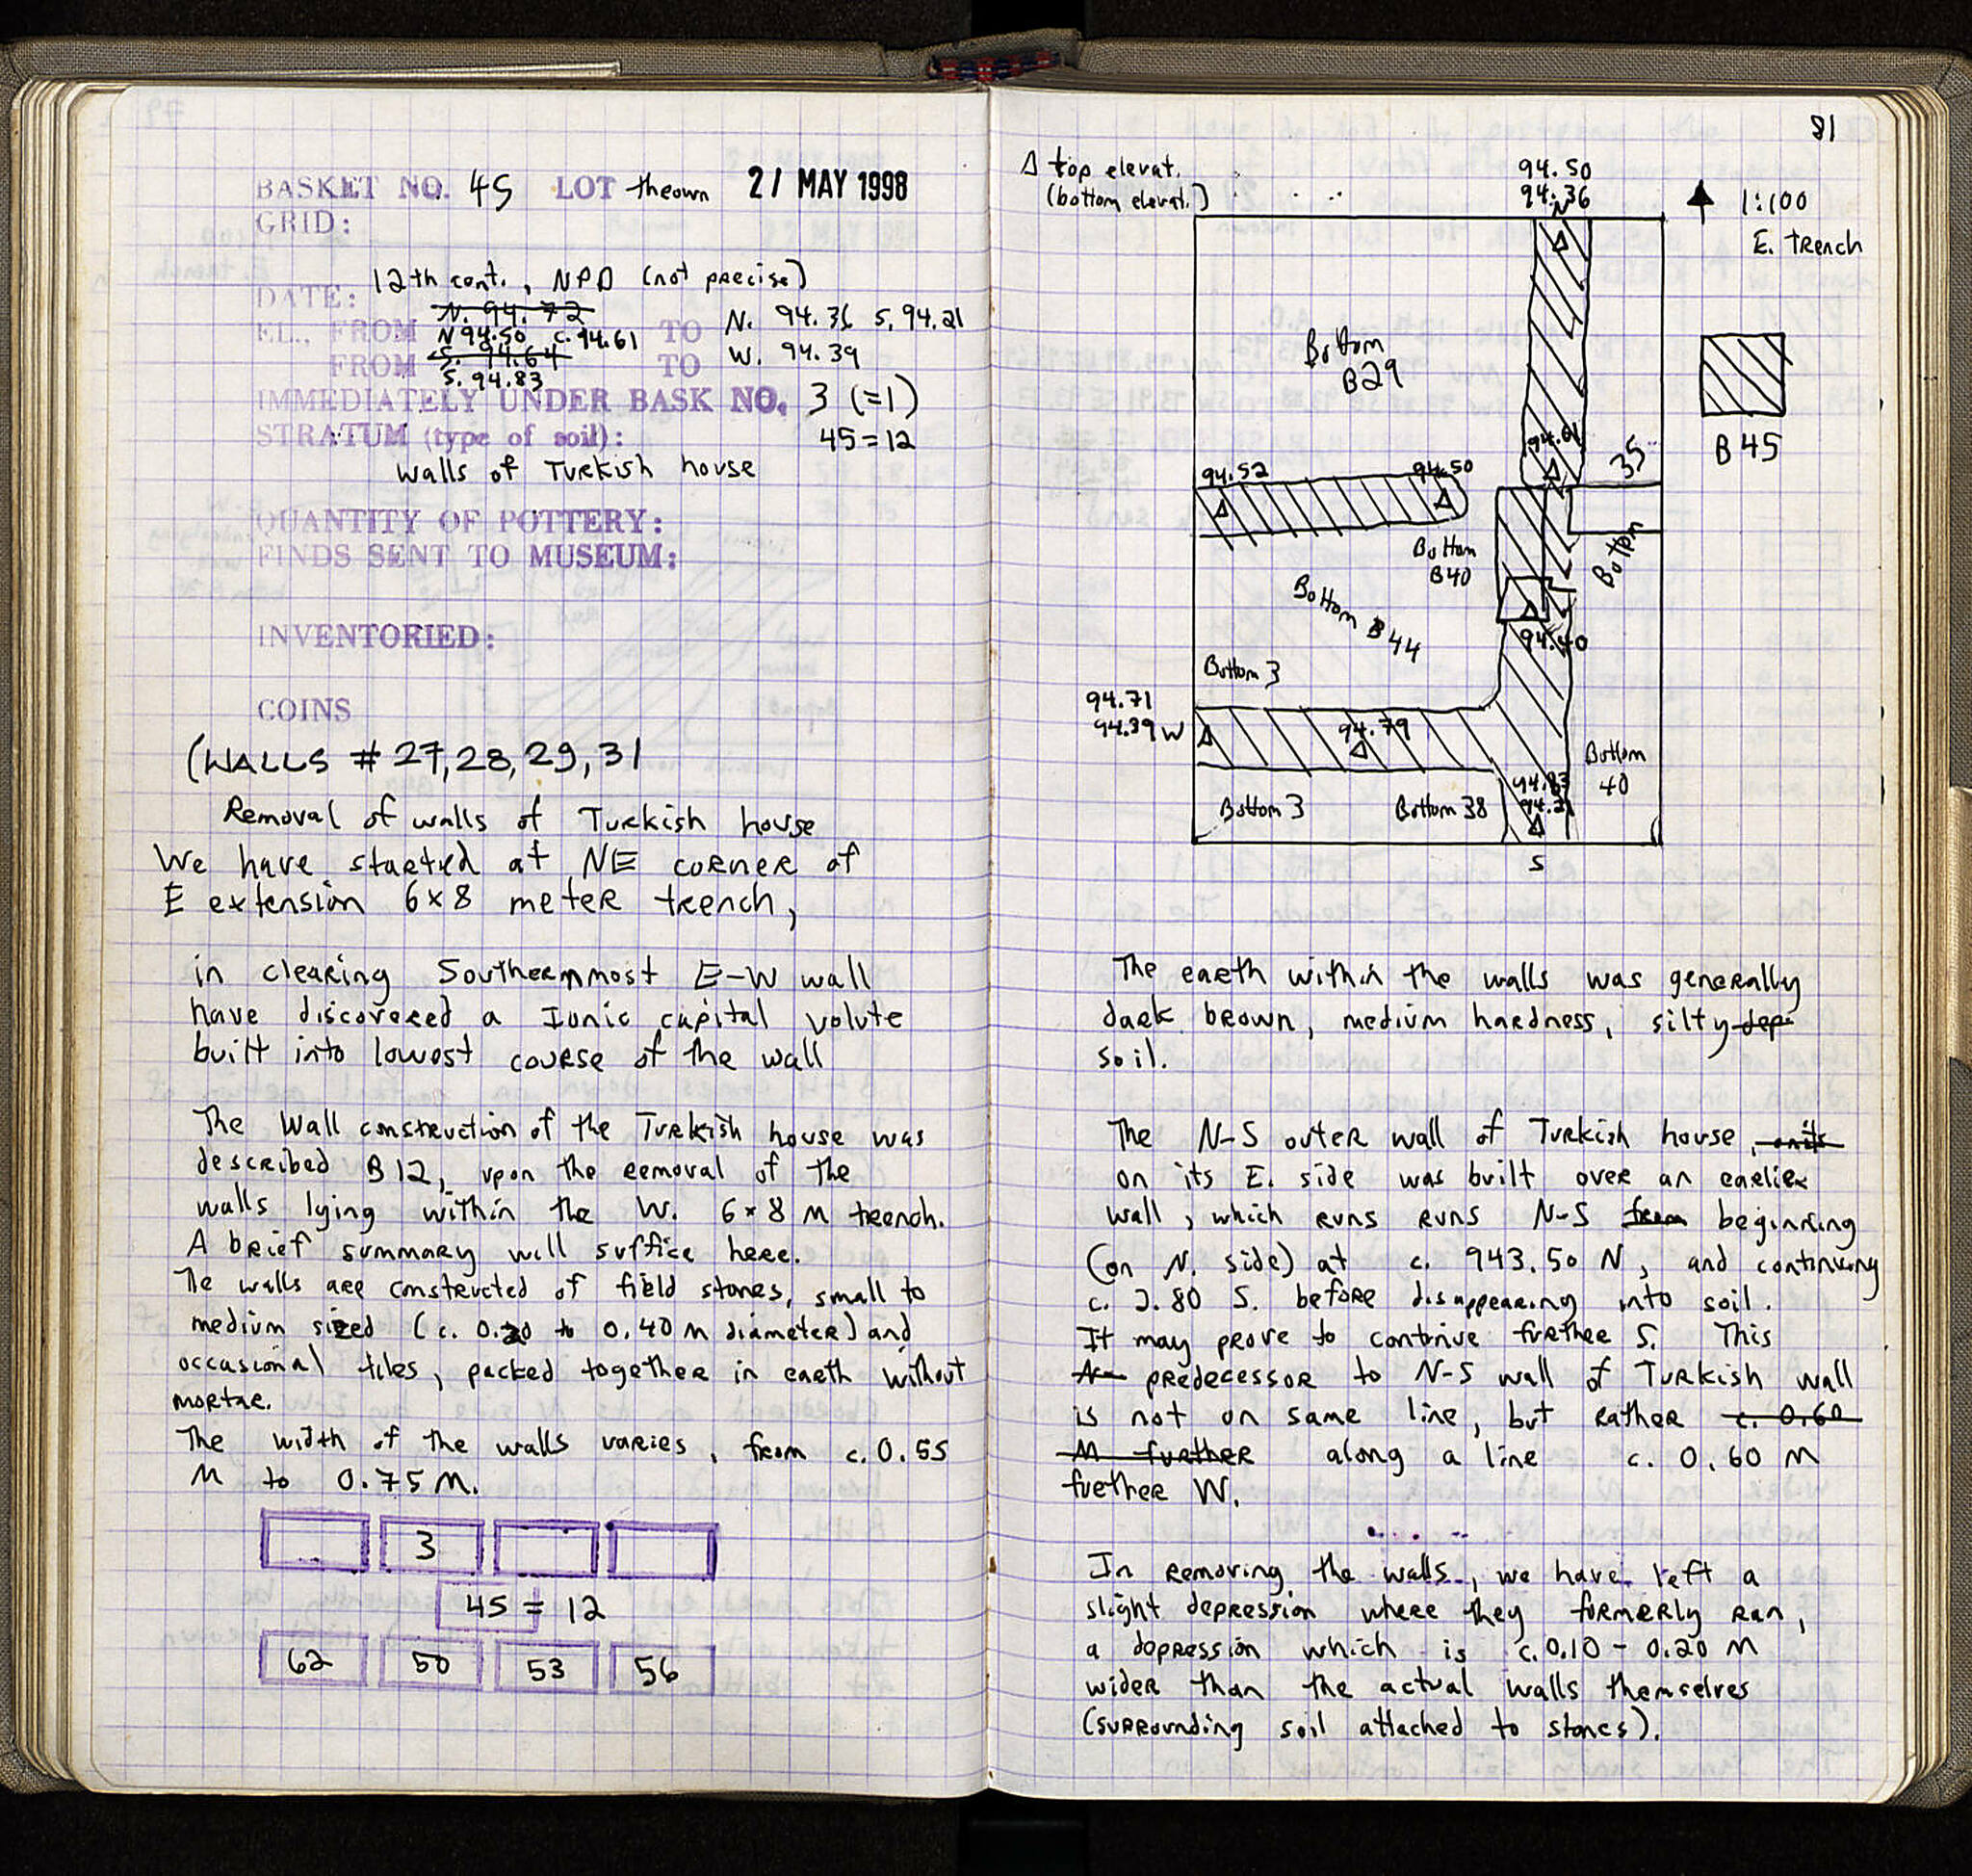 BASKET NO. 45 LOT thrown 21 MAY 1998
GRID:
DATE: 12th cent., NPD (not precise)
N. 94.72
EL., FROM N 94.50 c. 94.61 TO N. 94.36 S. 94.21
S. 94.64
FROM S. 94.83 TO W. 94.39
IMMEDIATELY UNDER BASK NO. 3 (=1)
STRATUM (type of soil): 45=12
walls of Turkish house
QUANTITY OF POTTERY:
FINDS SENT TO MUSEUM:
INVENTORIED:
COINS
(WALLS # 27, 28, 29, 31
Removal of walls of Turkish house
We have started at NE corner of
E extension 6x8 meter trench,
in clearing Southernmost E-W wall
have discovered a Ionic capital volute
built into lowest course of the wall
The Wall construction of the Turkish house was
described B12, upon the removal of the
walls lying within the W. 6x8 M trench.
A brief summary will suffice here.
The walls are constructed of field stones, small to
medium sized (c. 0.20 to 0.40 M diameter) and
occasional tiles, packed together in earth without
mortar.
The width of the walls varies, from c. 0.55
M to 0.75 M.
3
45 = 12
62 50 53 56
81
Δ top elevat.
(bottom elevat.)
94.50
94.36
N
1:100
E. Trench
Bottom
B29
B45
94.61
35
94.52
94.50
Bottom
B40
Bottom
Bottom B44
94.40
Bottom 3
94.71
94.39 W
94.79
Bottom
40
94.83
94.21
Bottom 3
Bottom 38
S
The earth within the walls was generally
dark brown, medium hardness, silty dep
soil.
The N-S outer wall of Turkish house,
on its E. side was built over an earlier
wall, which runs runs N-S from beginning
(on N. side) at c. 943.50 N, and continuing
c. 2.80 S. before disappearing into soil.
It may prove to continue further S. This
predecessor to N-S wall of Turkish wall
is not on same line, but rather c. 0.60
M further along a line c. 0.60 M
further W.
In removing the walls, we have left a
slight depression where they formerly ran,
a depression which is c. 0.10 - 0.20 M
wider than the actual walls themselves
(surrounding soil attached to stones).